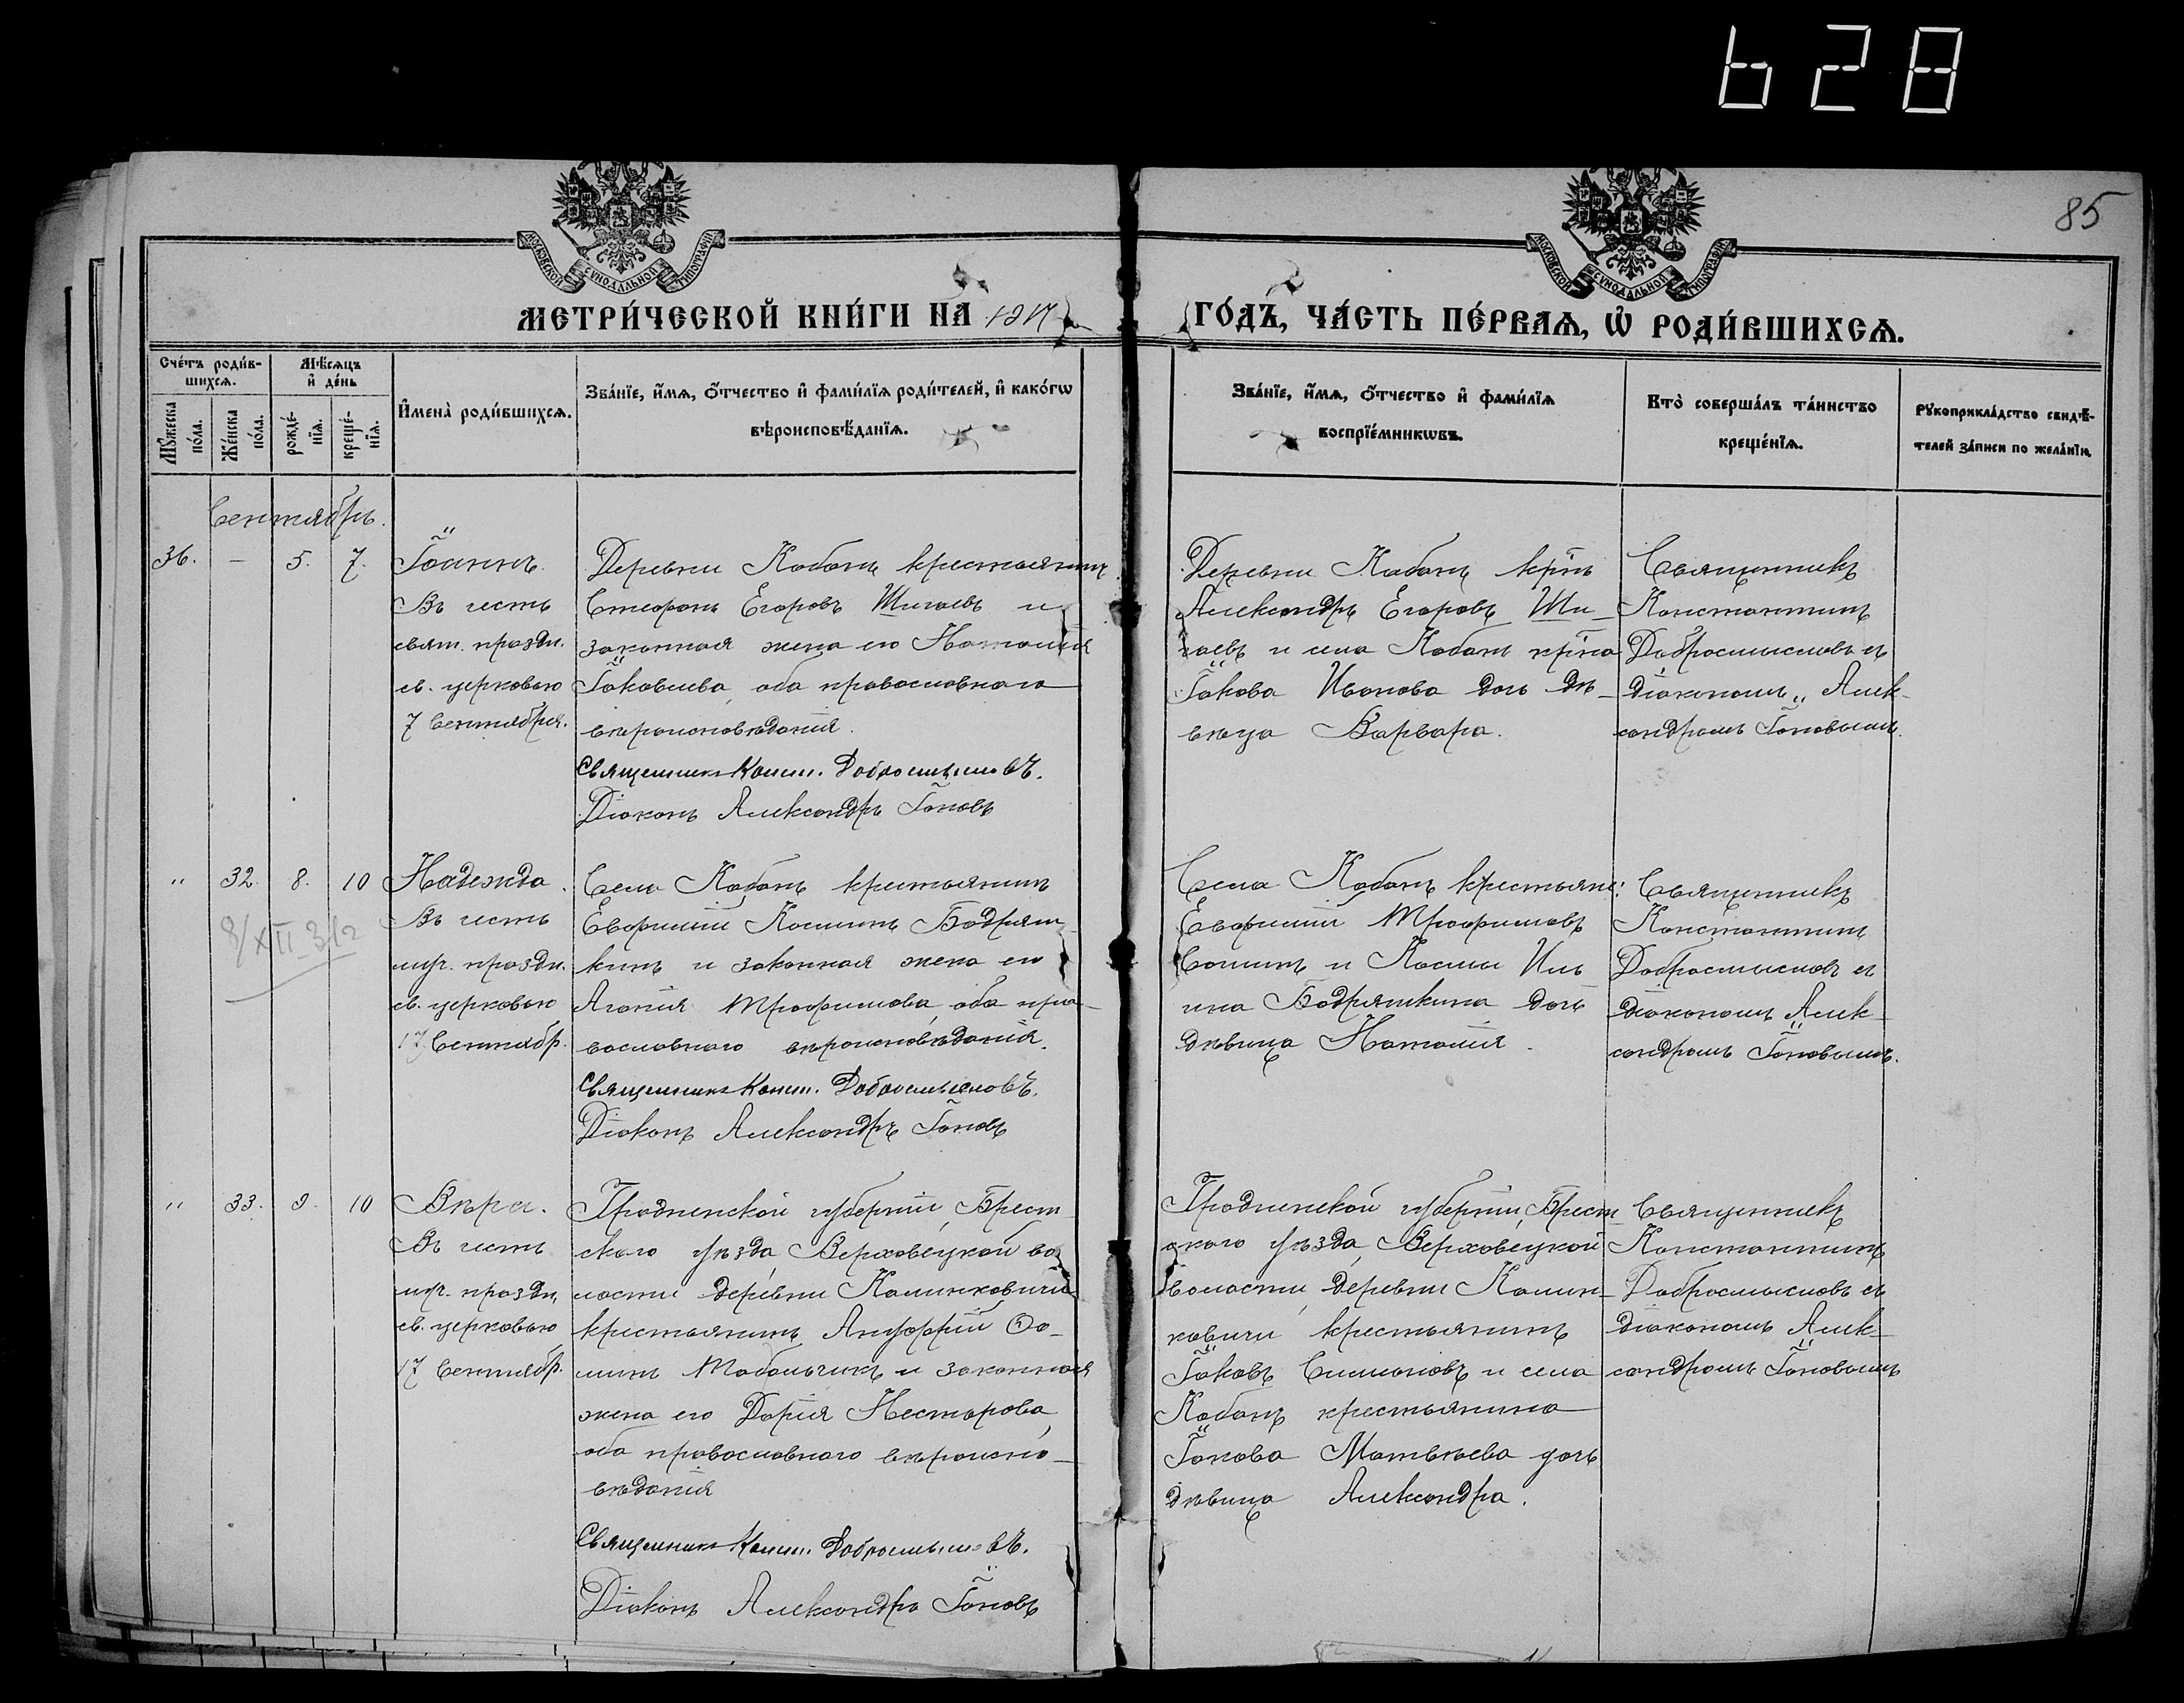 628
85
МОСКОВСКОЙ СѴНОДАЛЬНОЙ ТИПОГРАФІИ
МОСКОВСКОЙ СѴНОДАЛЬНОЙ ТИПОГРАФІИ
МЕТРИ́ЧЕСКОЙ КНИ́ГИ НА̀ 1917
ГО́ДЪ, ЧА́СТЬ ПЕ́РВАѦ, Ѡ҆ РОДИ́ВШИХСѦ.
Сче́тъ роди́в-
шихсѧ.
Мѣ́сѧцъ
и҆ де́нь
Мꙋ́жеска
по́ла.
Же́нска
по́ла.
рожде́-
нїѧ.
креще́-
нїѧ.
И҆мена̀ роди́вшихсѧ.
Зва́нїе, и҆́мѧ, ѻ҆́тчество и҆ фами́лїѧ роди́телей, и҆ како́гѡ
вѣроисповѣ́данїѧ.
Зва́нїе, и҆́мѧ, ѻ҆́тчество и҆ фами́лїѧ
воспрїе́мникѡвъ.
Кто̀ соверша́лъ та́инство
креще́нїѧ.
Рꙋкоприкла́дство свидѣ́-
телей за́писи по жела́нїю.
Сентябрь.
36. — 5. 7.
Іоаннъ.
Въ честь
свят. праздн.
св. церковью
7 Сентября.
Деревни Кабанъ крестьянинъ
Стефанъ Егоровъ Шигаевъ и
законная жена его Наталия
Іаковлева, оба православнаго
вѣроисповѣданія.
Священникъ Конст. Добросмысловъ.
Діаконъ Александръ Іоновъ
Деревни Кабанъ кр-нъ
Александръ Егоровъ Ши-
гаевъ и села Кабанъ кр-на
Іакова Иванова дочь дѣ-
вица Варвара.
Священникъ
Константинъ
Добросмысловъ съ
діакономъ Алек-
сандромъ Іоновымъ.
" 32. 8. 10
8/XII 312
Надежда.
Въ честь
муч. праздн.
св. церковью
17 Сентябр.
Села Кабанъ крестьянинъ
Евфимій Косминъ Бодряш-
кинъ и законная жена его
Агапія Трофимова, оба пра-
вославнаго вѣроисповѣданія.
Священникъ Конст. Добросмысловъ.
Діаконъ Александръ Іоновъ
Села Кабанъ крестьяне:
Евфимій Трофимовъ
Соминъ и Косма Иль
ина Бодряшкина дочь
дѣвица Наталія.
Священникъ
Константинъ
Добросмысловъ съ
діакономъ Алек-
сандромъ Іоновымъ.
" 33. 9. 10
Вѣра.
Въ честь
муч. праздн.
св. церковью
17 Сентябр.
Гродненской губерніи, Брест-
скаго уѣзда, Верховецкой во-
лости деревни Калинковичи
крестьянинъ Ануфрій Ѳо-
минъ Табольчикъ и законная
жена его Дарія Несторова,
оба православнаго вѣроиспо-
вѣданія
Священникъ Конст. Добросмысловъ.
Діаконъ Александръ Іоновъ
Гродненской губерніи, Брест-
скаго уѣзда, Верховецкой
волости, деревни Калин-
ковичи крестьянинъ
Іаковъ Симоновъ и села
Кабанъ крестьянина
Іакова Матвѣева дочь
дѣвица Александра.
Священникъ
Константинъ
Добросмысловъ съ
діакономъ Алек-
сандромъ Іоновымъ